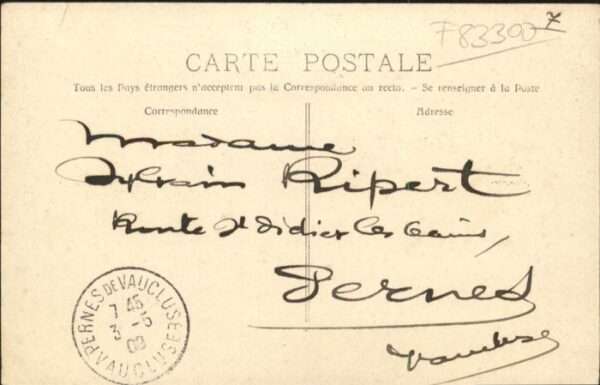 F83300 7
CARTE POSTALE
Tous les Pays étrangers n'acceptent pas la Correspondance au recto. - Se renseigner à la Poste
Correspondance
Adresse
Madame
Sylvain Ripert
Route St Didier les bains,
Pernes
Vaucluse
PERNES DE VAUCLUSE
7 45
3 - 5
09
VAUCLUSE